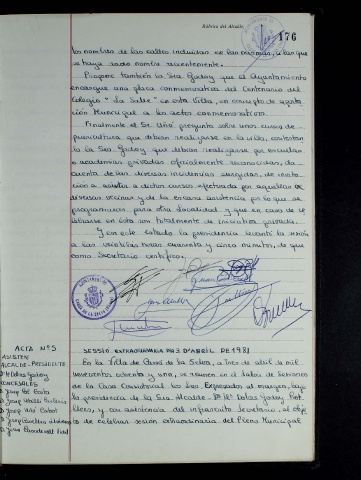 Rúbrica del Alcalde,
176
los nombres de las calles incluidas en las mismas, a las que
se haya dado nombre recientemente.
Propone también la Sra. Godoy que el Ayuntamiento
encargue una placa conmemorativa del Centenario del
Colegio "La Salle" en esta Villa, en concepto de aporta-
ción Municipal a los actos conmemorativos.
Finalmente el Sr. Uñó pregunta sobre unos cursos de
puericultura que debían realizarse en la villa, contestan-
do la Sra. Godoy que debían realizarse por escuelas
o academias privadas oficialmente reconocidas, da
cuenta de las diversas incidencias surgidas, de invita-
ción a asistir a dichos cursos efectuada por aquellas a
diversas vecinas y de la escasa asistencia por lo que se
programaron para otra localidad y que en caso de ce-
lebrarse en ésta son totalmente de iniciativa privada.
Y en este estado la presidencia levantó la sesión
a las veintidós horas cuarenta y cinco minutos, de que
como Secretario certifico.
ACTA Nº 5
ASISTEN
ALCALDE-PRESIDENTE
CONCEJALES
SESSIÓ EXTRAORDINARIA DIA 3 D'ABRIL DE 1981
En la Villa de Cassà de la Selva, a tres de abril de mil
novecientos ochenta y uno, se reunen en el Salón de Sesiones
de la Casa Consistorial los Sres. Expresados al margen, bajo
la presidencia de la Sra. Alcalde Dª Mª Dolas Godoy
y con asistencia del infrascrito Secretario, al obje-
to de celebrar sesión extraordinaria del Pleno Municipal